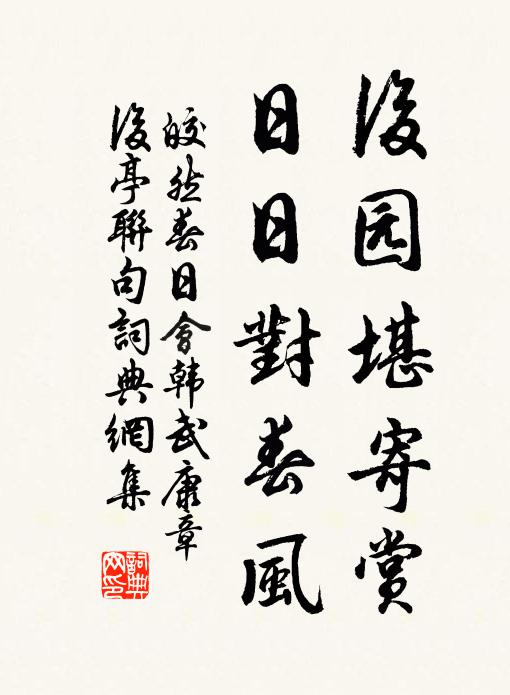 後园堪寄赏
日日對春風
皎然春日會韩武康章
後亭聯句詞典網集
詞典
网印